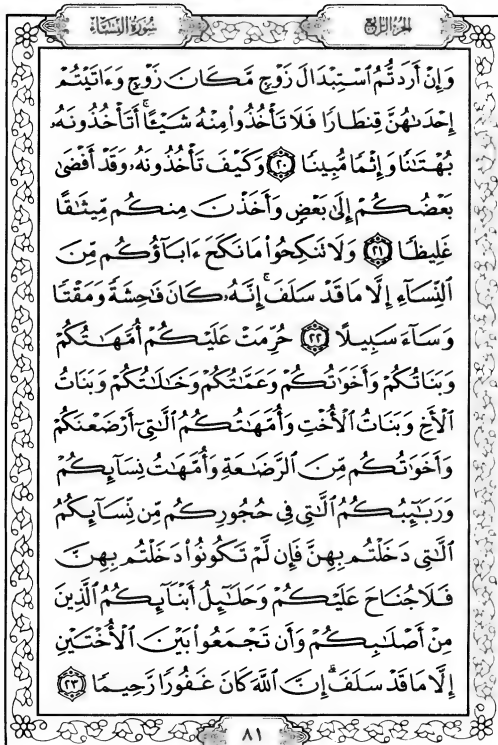 الجزء الرابع
سورة النساء
وَإِنْ أَرَدتُّمُ ٱسْتِبْدَالَ زَوْجٍ مَّكَانَ زَوْجٍ وَءَاتَيْتُمْ
إِحْدَىٰهُنَّ قِنطَارًا فَلَا تَأْخُذُوا۟ مِنْهُ شَيْـًٔا ۚ أَتَأْخُذُونَهُۥ
بُهْتَٰنًا وَإِثْمًا مُّبِينًا ٢٠ وَكَيْفَ تَأْخُذُونَهُۥ وَقَدْ أَفْضَىٰ
بَعْضُكُمْ إِلَىٰ بَعْضٍ وَأَخَذْنَ مِنكُم مِّيثَٰقًا
غَلِيظًا ٢١ وَلَا تَنكِحُوا۟ مَا نَكَحَ ءَابَآؤُكُم مِّنَ
ٱلنِّسَآءِ إِلَّا مَا قَدْ سَلَفَ ۚ إِنَّهُۥ كَانَ فَٰحِشَةً وَمَقْتًا
وَسَآءَ سَبِيلًا ٢٢ حُرِّمَتْ عَلَيْكُمْ أُمَّهَٰتُكُمْ
وَبَنَاتُكُمْ وَأَخَوَٰتُكُمْ وَعَمَّٰتُكُمْ وَخَٰلَٰتُكُمْ وَبَنَاتُ
ٱلْأَخِ وَبَنَاتُ ٱلْأُخْتِ وَأُمَّهَٰتُكُمُ ٱلَّٰتِىٓ أَرْضَعْنَكُمْ
وَأَخَوَٰتُكُم مِّنَ ٱلرَّضَٰعَةِ وَأُمَّهَٰتُ نِسَآئِكُمْ
وَرَبَٰٓئِبُكُمُ ٱلَّٰتِى فِى حُجُورِكُم مِّن نِّسَآئِكُمُ
ٱلَّٰتِى دَخَلْتُم بِهِنَّ فَإِن لَّمْ تَكُونُوا۟ دَخَلْتُم بِهِنَّ
فَلَا جُنَاحَ عَلَيْكُمْ وَحَلَٰٓئِلُ أَبْنَآئِكُمُ ٱلَّذِينَ
مِنْ أَصْلَٰبِكُمْ وَأَن تَجْمَعُوا۟ بَيْنَ ٱلْأُخْتَيْنِ
إِلَّا مَا قَدْ سَلَفَ ۗ إِنَّ ٱللَّهَ كَانَ غَفُورًا رَّحِيمًا ٢٣
٨١